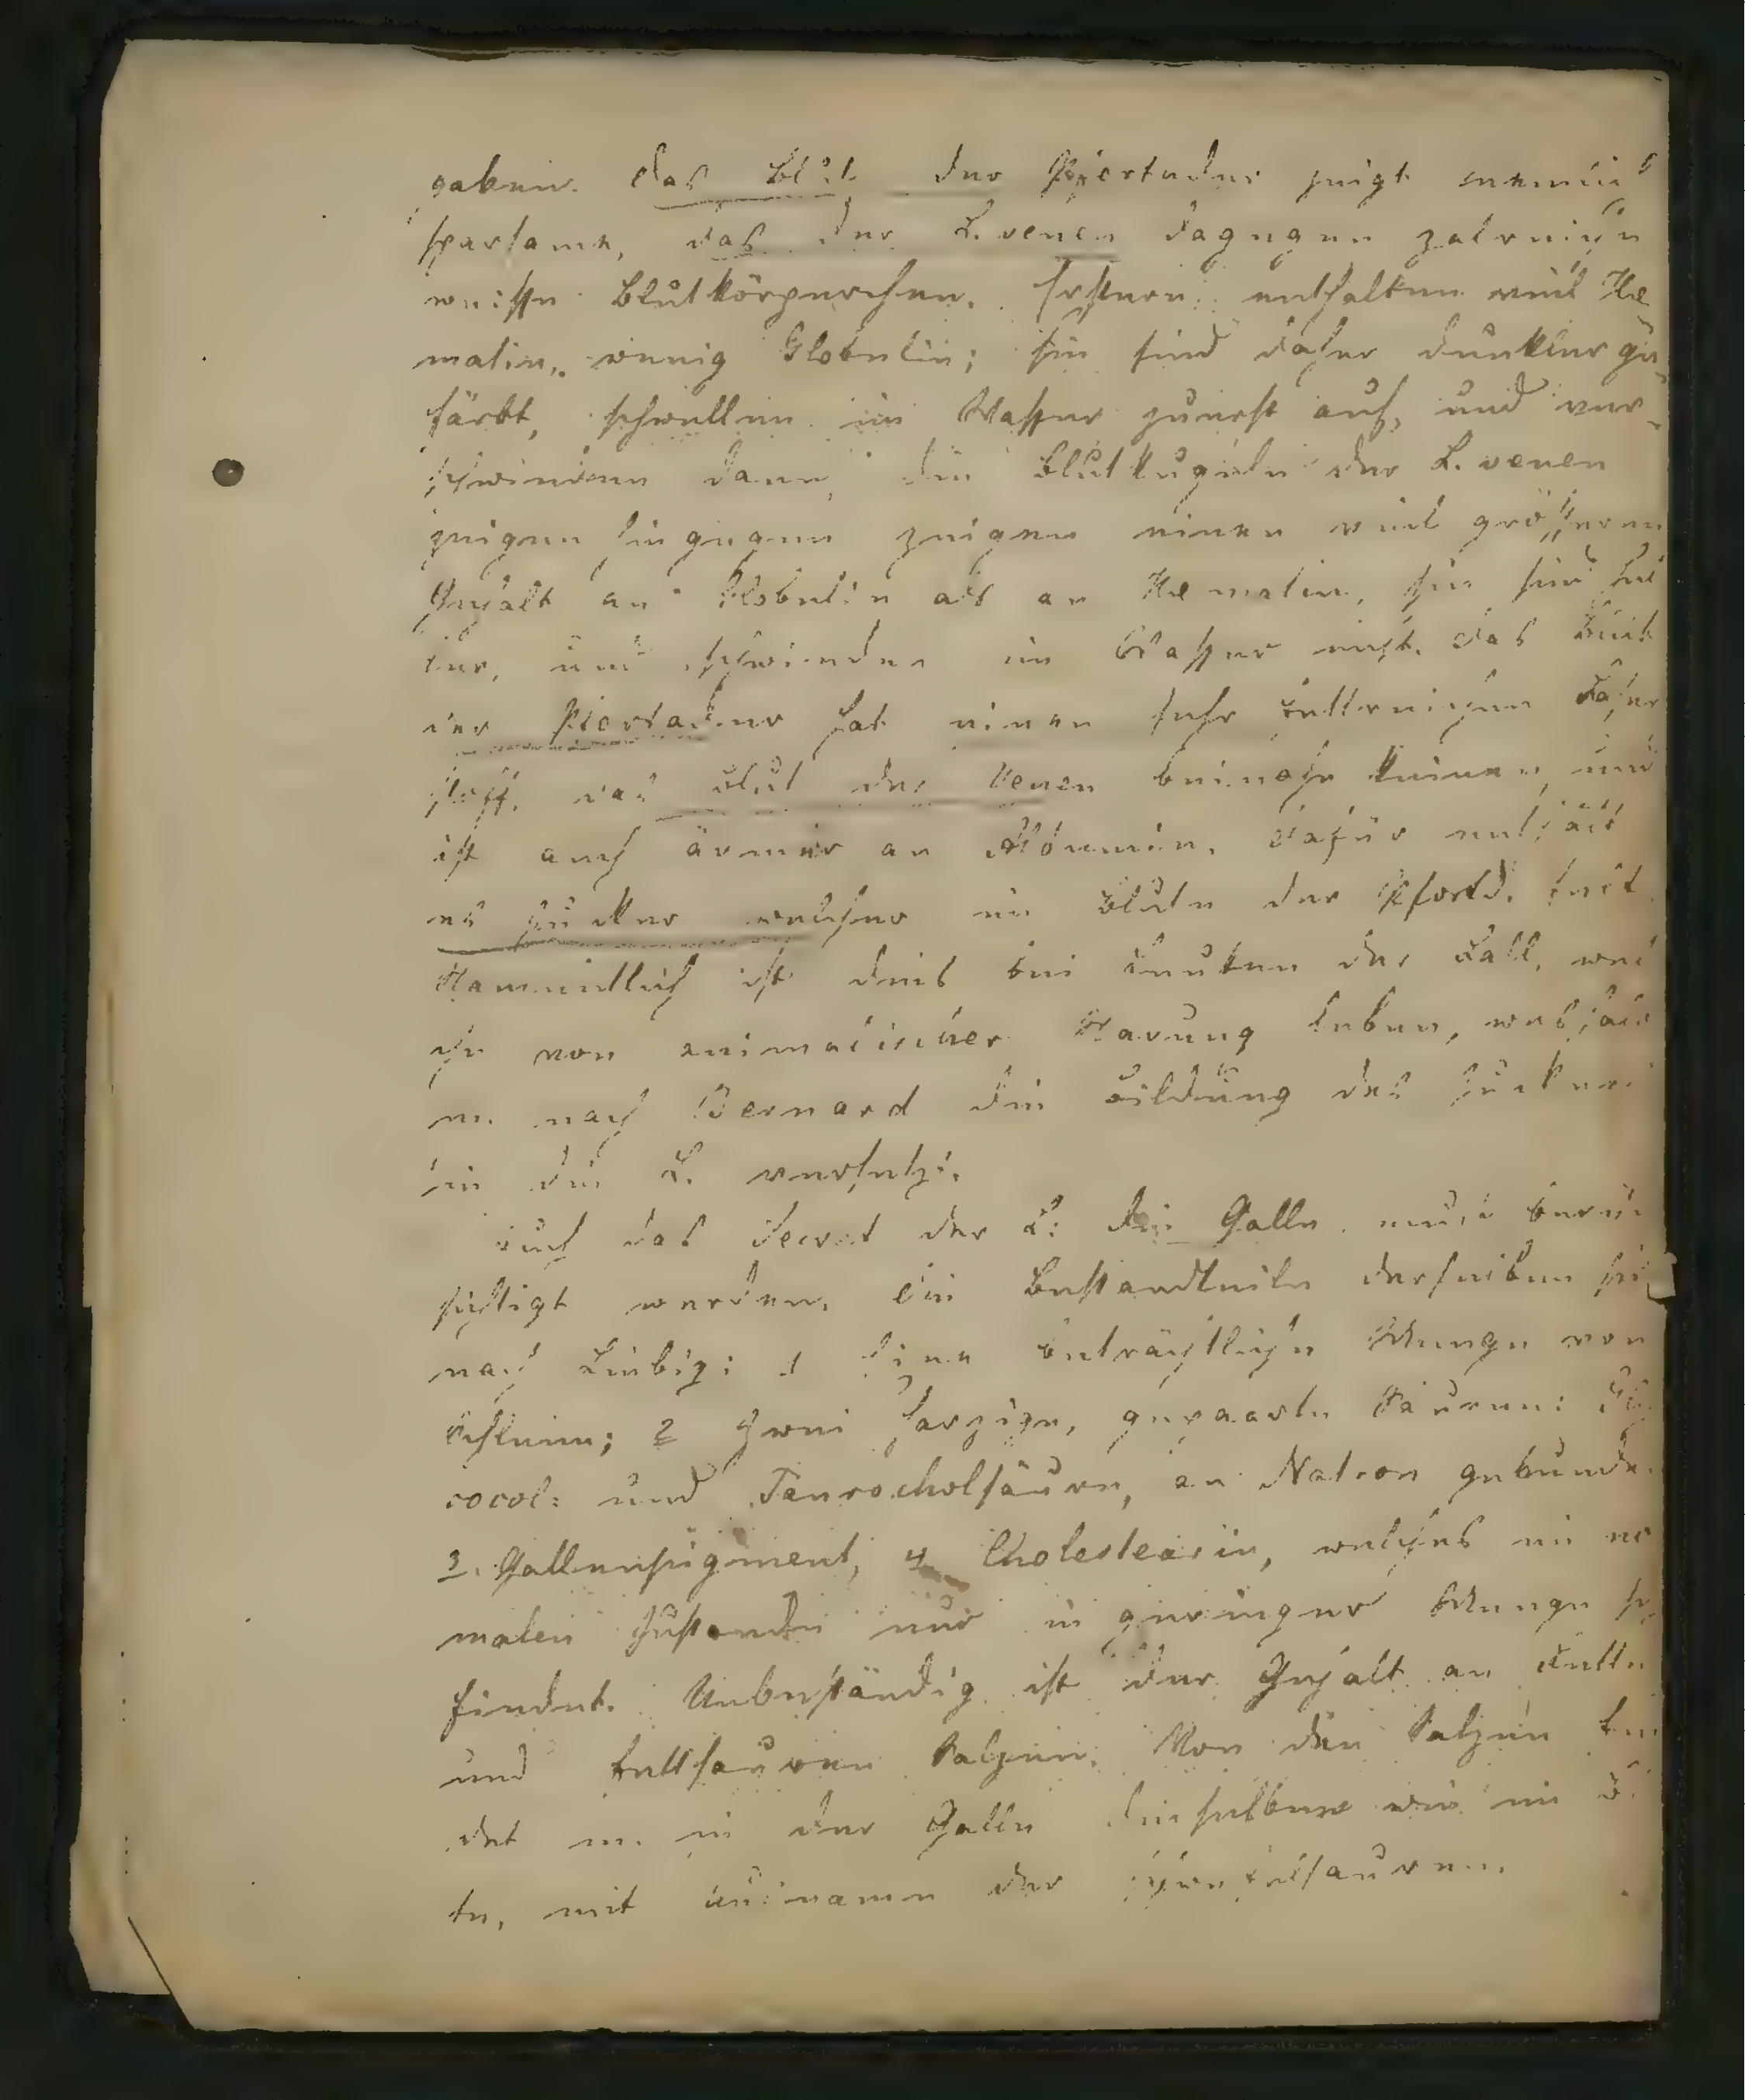 gaben. Das Blut der Pfortader zeigt
sparsame, das der L. venen dagegen zalreiche
weisse Blutkörperchen. Erstere enthalten viel Hæ-
matin, wenig Globulin; sie sind daher dunkler ge-
färbt, schwellen in Wasser zuerst auf, und ver-
schwinden dann, die Blutkugeln der L. venen
zeigen hingegen zeigen einen viel grösseren
Gehalt an Globulin als an Hæmatin, sie sind hel
ler, und schwinden in Wasser nicht. Das Blut
der Pfortader hat einen sehr fettreichen Faser
stoff, das Blut der Venen beinahe keinen, und
ist auch ärmer an Albumin. Dafür enthält
es Zucker welcher im Blute der Pfortd. felt.
Namentlich ist dies bei Leuten der Fall, wel
che von animalischer Narung leben, weshalb
m. nach Bernard die Bildung des Zuckers
in die L. versetzt.
Auch das Secret der L: die Galle muss berük
sichtigt werden. Die Bestandteile derselben sind
nach Liebig: 1 Eine beträchtliche Menge von
Schleim; 2 Zwei harzige, gepaarte Säuren: Gly
cocol: und Taurocholsäure, an Natron gebunden.
3. Gallenpigment, 4 Cholestearin, welches im nor
malen Zustande nur in geringer Menge sich
findet. Unbeständig ist der Gehalt an Fette
und fettsauren Salzen. Von den Salzen fin
det m. in der Galle dieselben wie im Blu
te, mit Ausname der schwefelsauren.